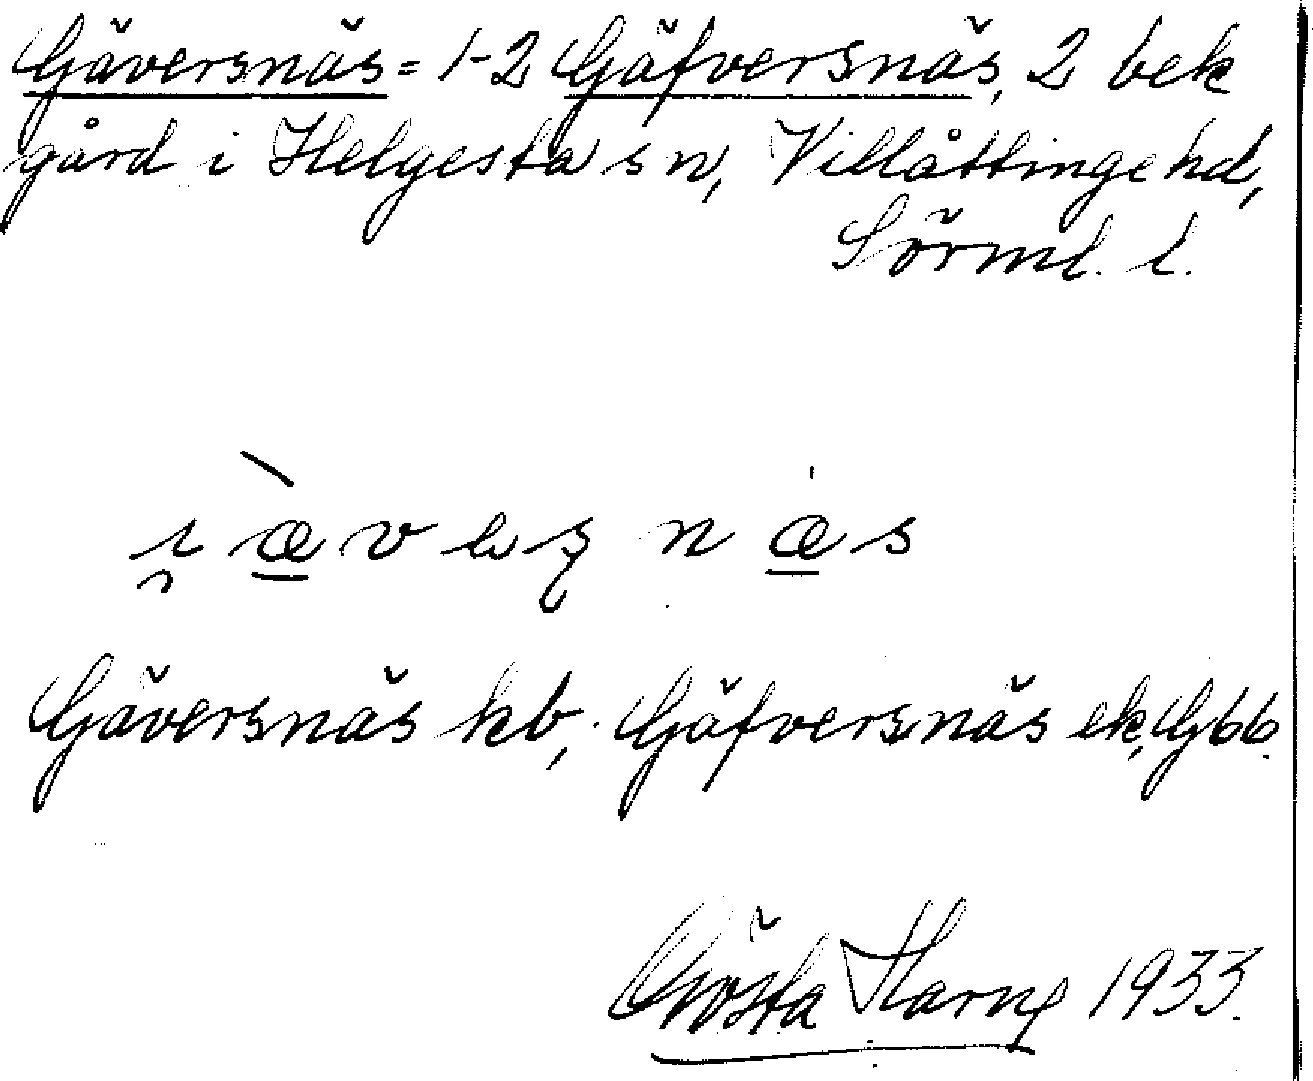 Gäversnäs = 1-2 Gäfversnäs, 2 bek
gård i Helgesta sn, Villåttinge hd,
Sörml. l.
Gäversnäs kb, Gäfversnäs ek, Gbb.
Gösta Harne 1933.